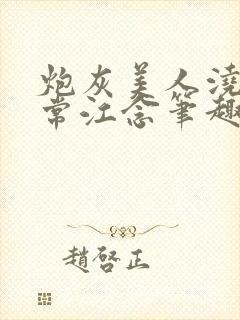 炮灰美人澆
常江念筆趣
趙啓正